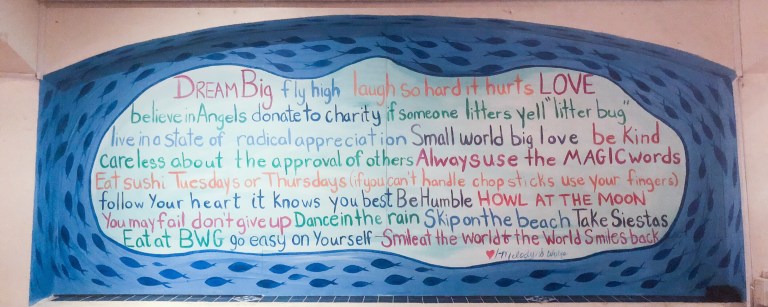 DREAM Big fly high laugh so hard it hurts LOVE
believe in Angels donate to charity if someone litters yell "litter bug"
live in a state of radical appreciation Small world big love be kind
care less about the approval of others Always use the MAGIC words
Eat sushi Tuesdays or Thursdays (if you can't handle chop sticks use your fingers)
follow your heart it knows you best Be Humble HOWL AT THE MOON
You may fail don't give up Dance in the rain Skip on the beach Take Siestas
Eat at BWG go easy on Yourself Smile at the World & the World Smiles back